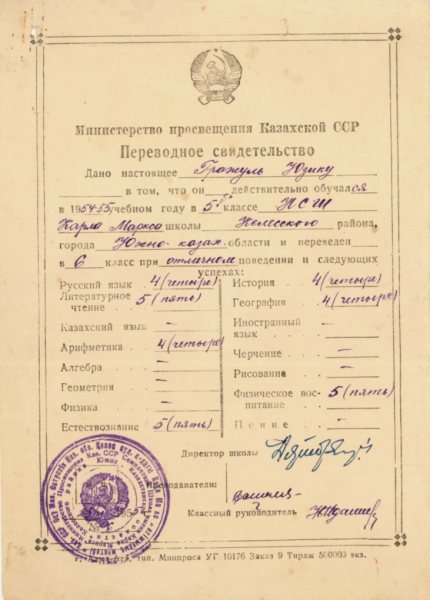 Министерство просвещения Казахской ССР
Переводное свидетельство
Дано настоящее Гражуль Юзику
в том, что он действительно обучался
в 1954-55 учебном году в 5 классе НСШ
Карла Маркса школы Келесского района,
города Южно-казах. области и переведен
в 6 класс при отличном поведении и следующих
успехах:
Русский язык 4 (четыре)
Литературное
чтение 5 (пять)
Казахский язык —
Арифметика 4 (четыре)
Алгебра —
Геометрия —
Физика —
Естествознание 5 (пять)
История 4 (четыре)
География 4 (четыре)
Иностранный
язык —
Черчение —
Рисование —
Физическое вос-
питание 5 (пять)
Пение —
Директор школы
Преподаватели:
Классный руководитель
тип. Минпроса УГ 10176 Заказ 9 Тираж 500000 экз.